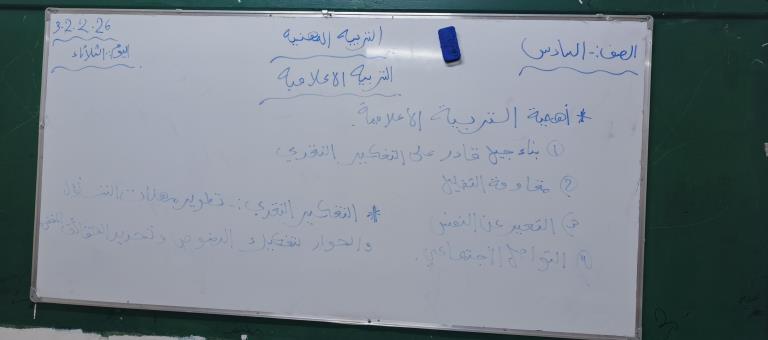 الصف:- السادس
التربية المهنية
3.2.2.26
اليوم: الثلاثاء
التربية الاعلامية
* أهمية التربية الأعلامية.
① بناء جيل قادر على التفكير النقدي
② مقاومة التضليل
③ التعبير عن النفس
④ التواصل الاجتماعي.
* التفكير النقدي:- تطوير مهارات التساؤل
والحوار لتفكيك النصوص وتحديد الحقائق